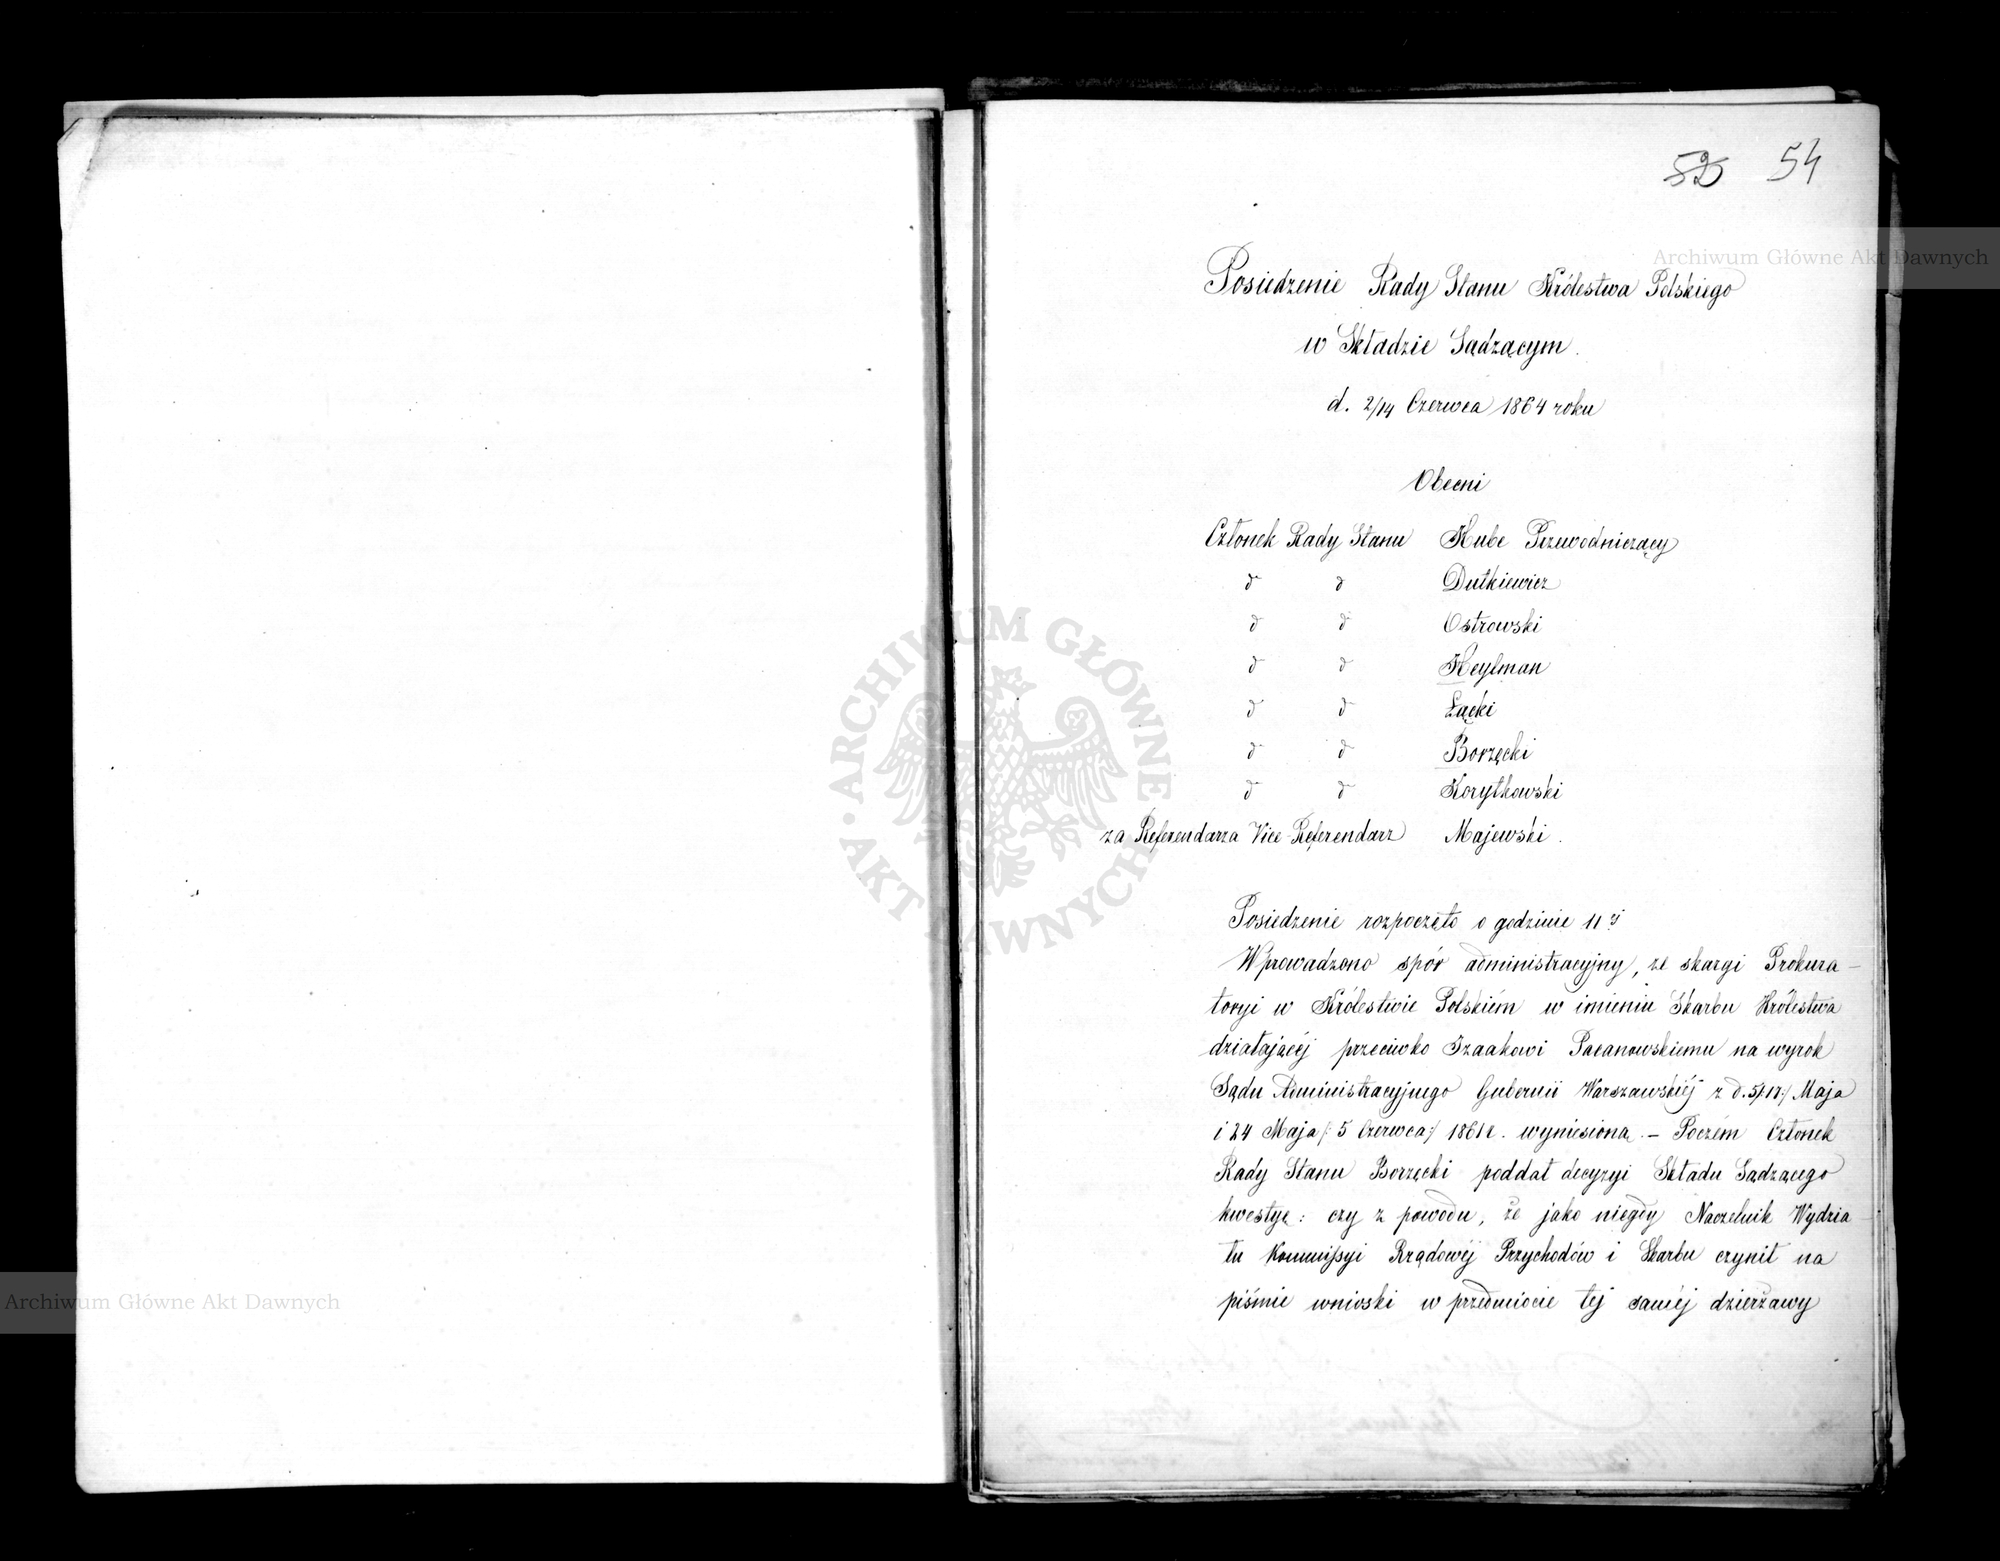 52 54
Archiwum Główne Akt Dawnych
Posiedzenie Rady Stanu Królestwa Polskiego
w Składzie Sądzącym.
d. 2/14 Czerwca 1864 roku
Obecni
Członek Rady Stanu Hube Przewodniczący
d d Dutkiewicz
d d Ostrowski
d d Heylman
d d Łącki
d d Borzęcki
d d Korytkowski
za Referendarza Vice-Referendarz Majewski.
ARCHIWUM GŁÓWNE AKT DAWNYCH
Posiedzenie rozpoczęto o godzinie 11ej
Wprowadzono spór administracyjny, ze skargi Prokura-
toryi w Królestwie Polskiém w imieniu Skarbu Królestwa
działającéj przeciwko Izaakowi Pacanowskiemu na wyrok
Sądu Administracyjnego Gubernii Warszawskiéj z d. 5/:17:/ Maja
i 24 Maja /: 5 Czerwca:/ 1861 r. wyniesioną. – Poczém Członek
Rady Stanu Borzęcki poddał decyzyi Składu Sądzącego
kwestyę: czy z powodu, że jako niegdy Naczelnik Wydzia-
łu Kommissyi Rządowéj Przychodów i Skarbu czynił na
piśmie wnioski w przedmiocie tej saméj dzierżawy
Archiwum Główne Akt Dawnych